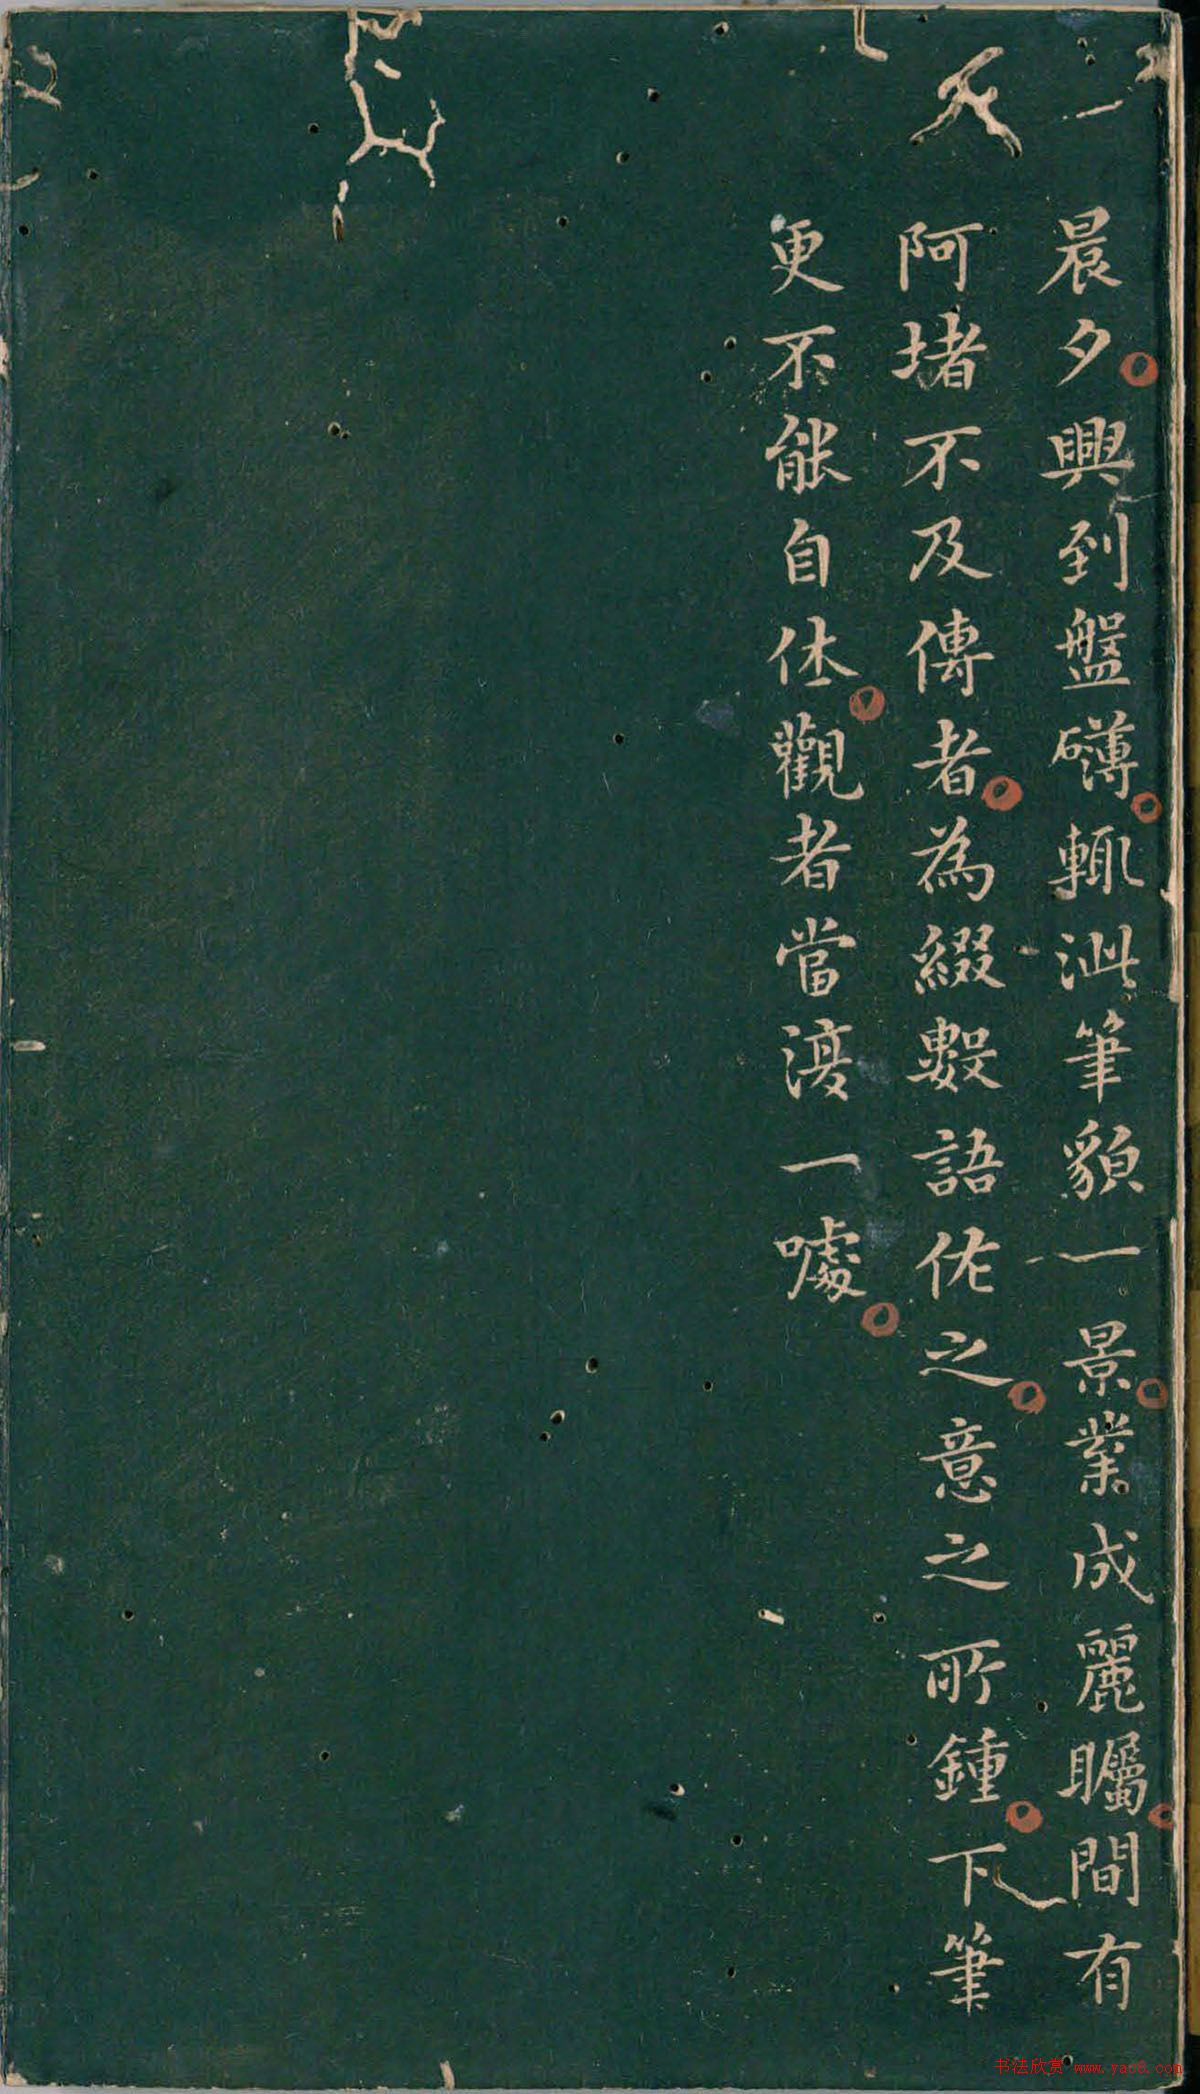 晨夕興到盤礴輒泚筆貌一景業成麗矚間有
阿堵不及傳者為綴數語佐之意之所鍾下筆
更不能自休觀者當渡一噱
书法欣赏 www.yac8.com